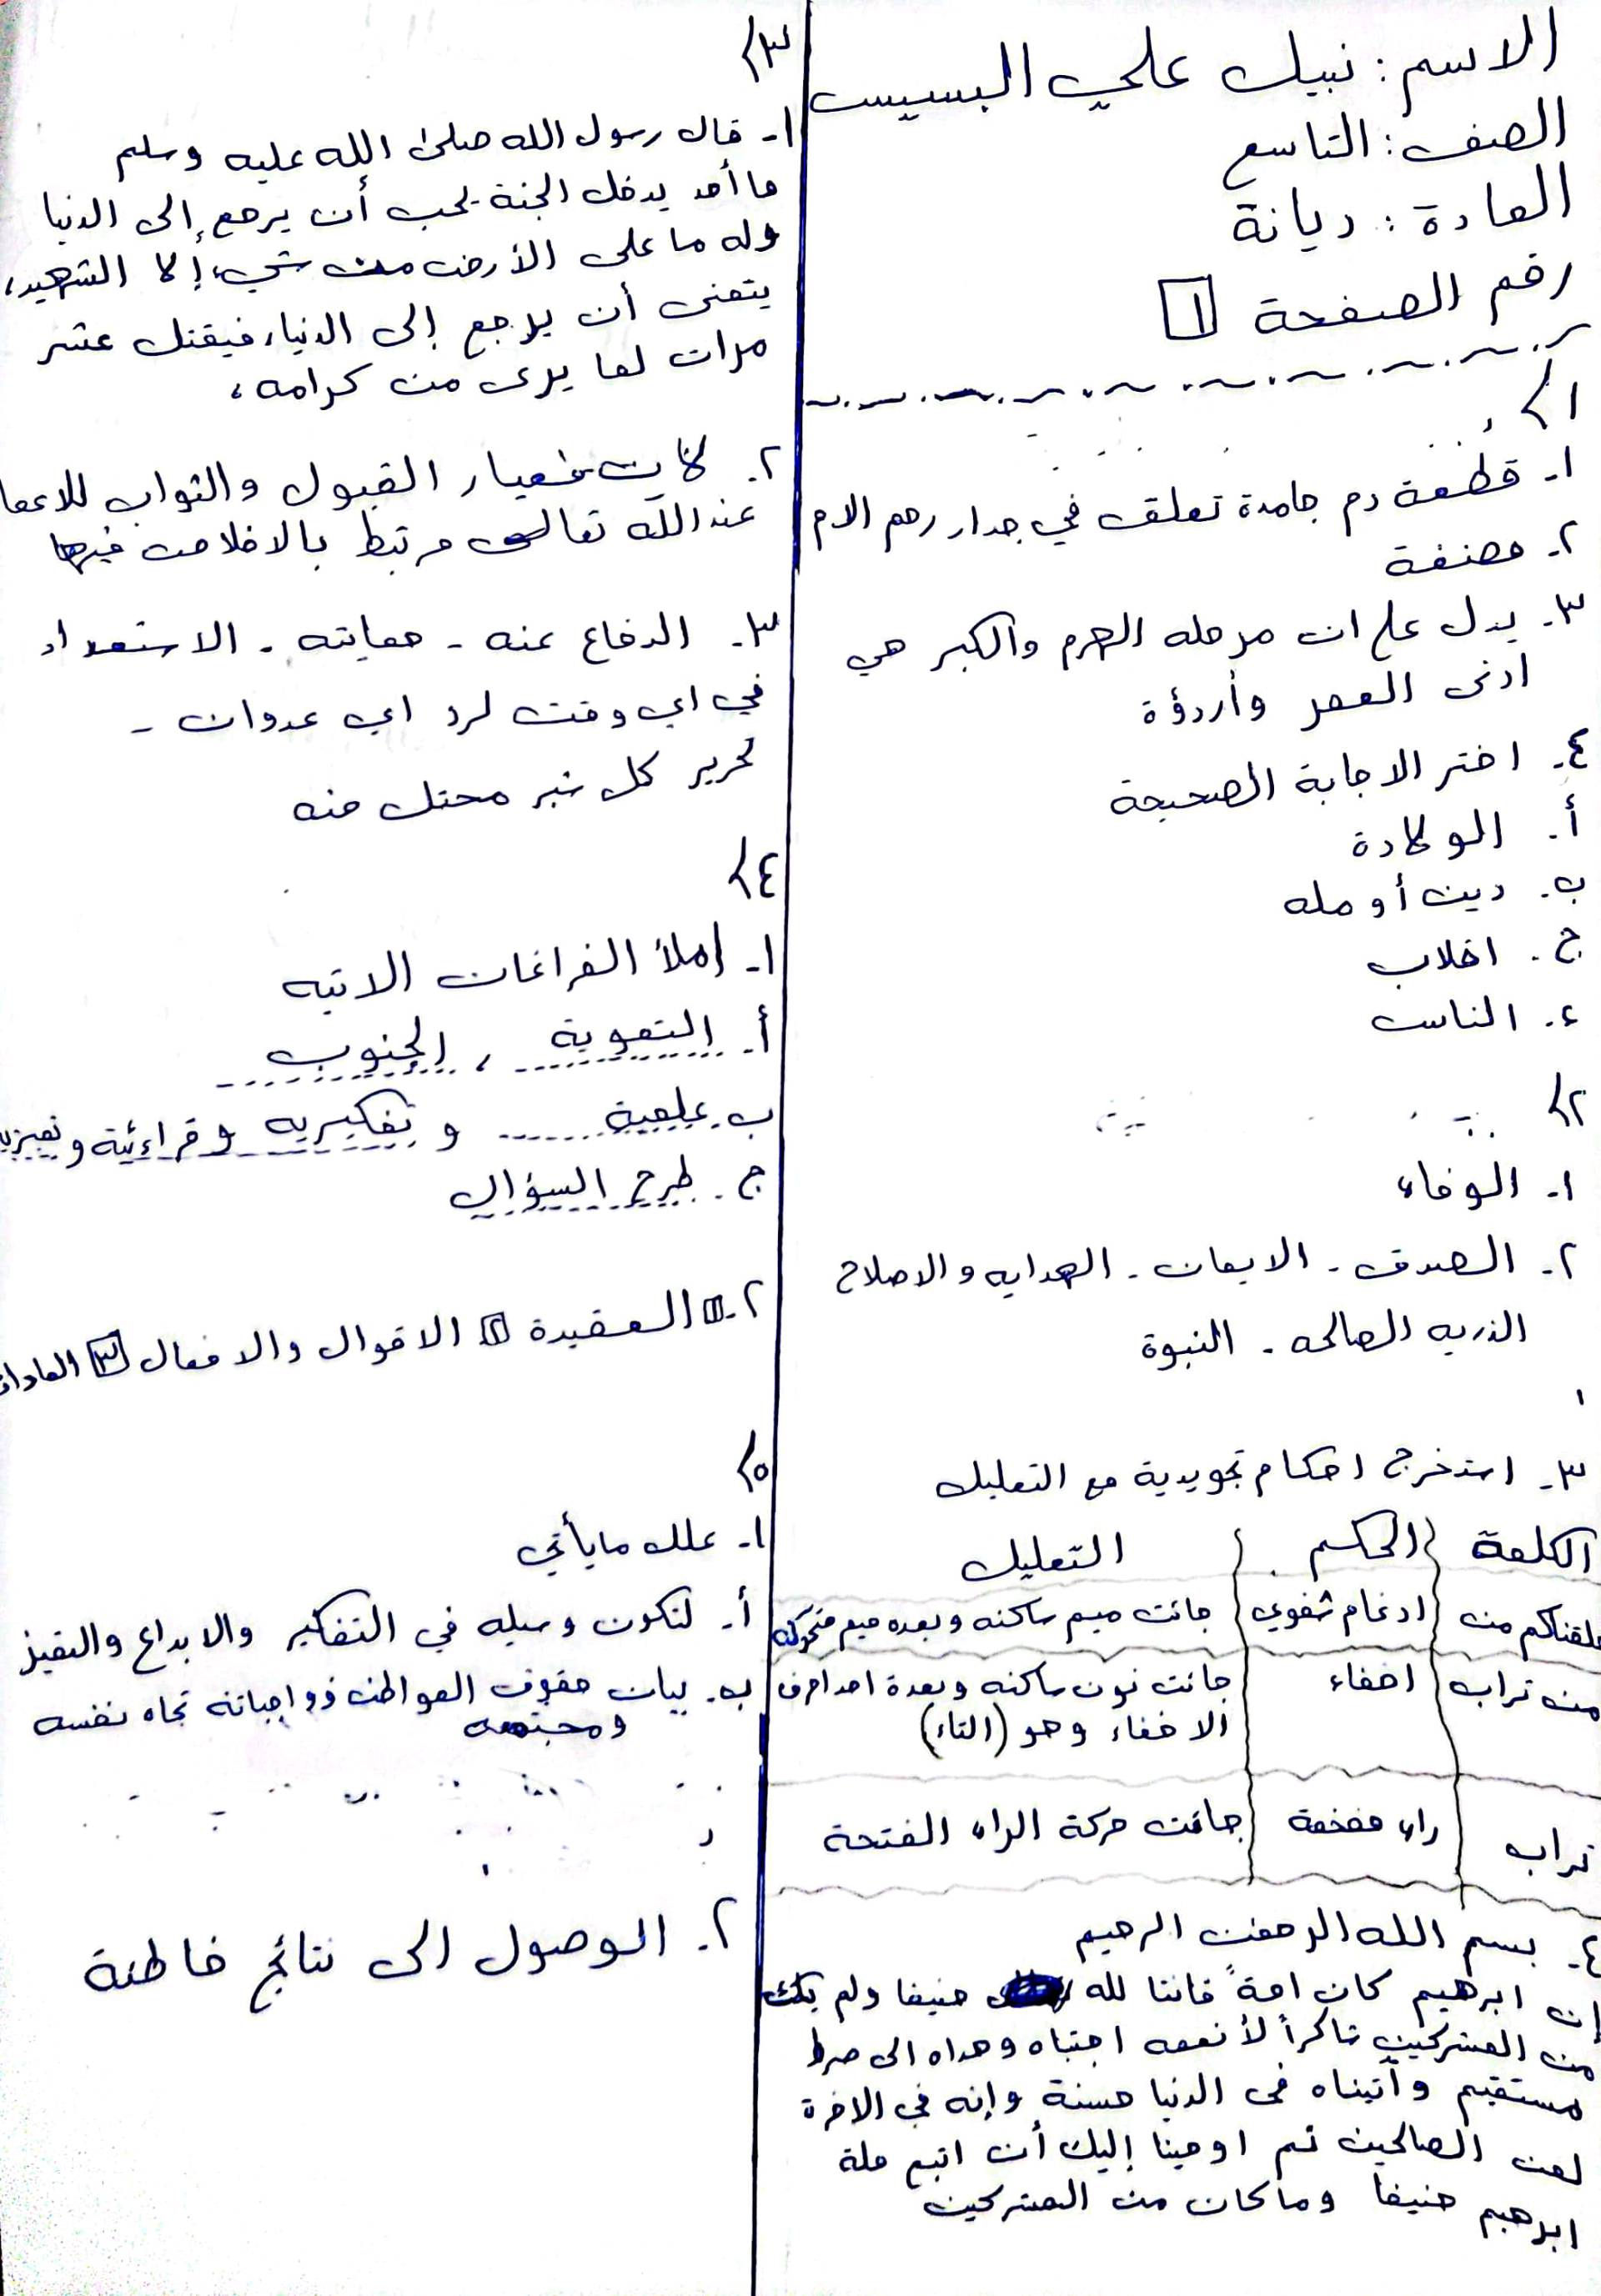 الاسم: نبيل علي البسيس
الصف: التاسع
المادة: ديانة
رقم الصفحة ١
١>
١- قطعة دم جامدة تعلق في جدار رحم الام
٢- مضغة
٣- يدل على ان مرحله الهرم والكبر هي
ادنى العمر وأردؤة
٤- اختر الاجابة الصحيحة
أ. الولادة
ب. دين أو مله
ج. اغلاب
ء. الناس
٢>
١- الوفاء
٢- الصدق - الايمان - الهدايه والاصلاح
الذريه الصالحه - النبوة
٣- استخرج احكام تجويدية مع التعليل
الكلمة الحكم التعليل
خلقناكم من ادغام شفوي جائت ميم ساكنه وبعده ميم متحركه
من تراب اخفاء جائت نون ساكنه وبعدة احد احرف
الاخفاء وهو (التاء)
تراب راء مفخمة جائت حركة الراء الفتحة
٤- بسم الله الرحمن الرحيم
إن ابرهيم كان امةً قانتا لله حنيفا ولم يك
من المشركين شاكراً لأنعمه اجتباه وهداه الى صرط
مستقيم وآتيناه في الدنيا حسنة وإنه في الاخرة
لمن الصالحين ثم اوحينا إليك أن اتبع ملة
ابرهيم حنيفا وما كان من المشركين
٣>
١- قال رسول الله صلى الله عليه وسلم
ما أحد يدخل الجنة يحب أن يرجع إلى الدنيا
وله ما على الأرض من شيء إلا الشهيد،
يتمنى أن يرجع إلى الدنيا، فيقتل عشر
مرات لما يرى من كرامه،
٢. لان معيار القبول والثواب للاعما
عند الله تعالى مرتبط بالاخلاص فيها
٣. الدفاع عنه - حمايته - الاستعداد
في اي وقت لرد اي عدوان -
تحرير كل شبر محتل منه
٤>
١- إملأ الفراغات الاتيه
أ. التعوية، الجنوب
ب. علمية و تفكيريه وقراءئية و
ج. طرح السؤال
٢- ١ العقيدة ٢ الاقوال والافعال ٣ العادات
٥>
١- علل ما يأتي
أ. لتكون وسيله في التفكير والابداع والتميز
ب. بيان حقوق المواطن وواجباته تجاه نفسه
ومجتمعه
٢. الوصول الى نتائج خاطئة